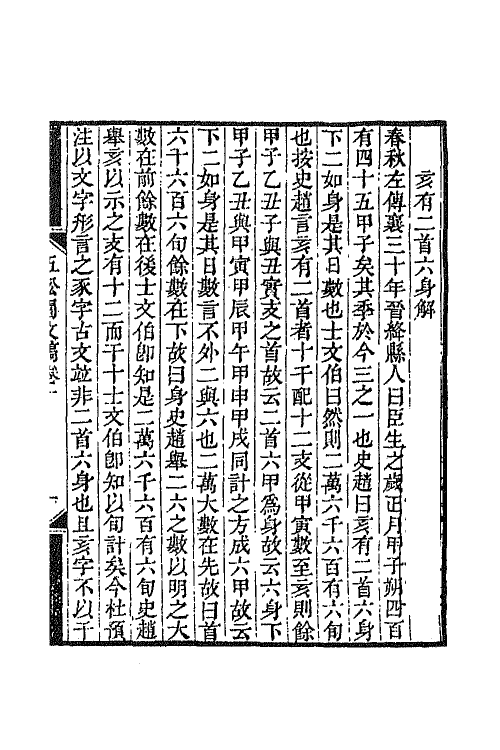 亥有二首六身解
春秋左傳襄三十年晉絳縣人曰臣生之歲正月甲子朔四百
有四十五甲子矣其季於今三之一也史趙曰亥有二首六身
下二如身是其日數也士文伯曰然則二萬六千六百有六旬
也按史趙言亥有二首者十千配十二支從甲寅數至亥則餘
甲子乙丑子與丑實支之首故云二首六甲爲身故云六身下
甲子乙丑與甲寅甲辰甲午甲申甲戌同計之方成六甲故云
下二如身是其日數言不外二與六也二萬大數在先故曰首
六千六百六旬餘數在下故曰身史趙舉二六之數以明之大
數在前餘數在後士文伯卽知是二萬六千六百有六旬史趙
舉亥以示之支有十二而干十士文伯卽知以旬計矣今杜預
注以文字形言之豕字古文竝非二首六身也且亥字不以干
五松園文稿卷一
一